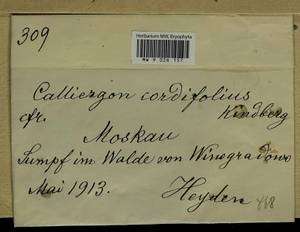 309
Herbarium MW, Bryophyta
MW 9 026 157
Calliergon cordifolius
cfr. Kindberg
Moskau
Sumpf im Walde von Winogradowo
Mai 1913. Heyden